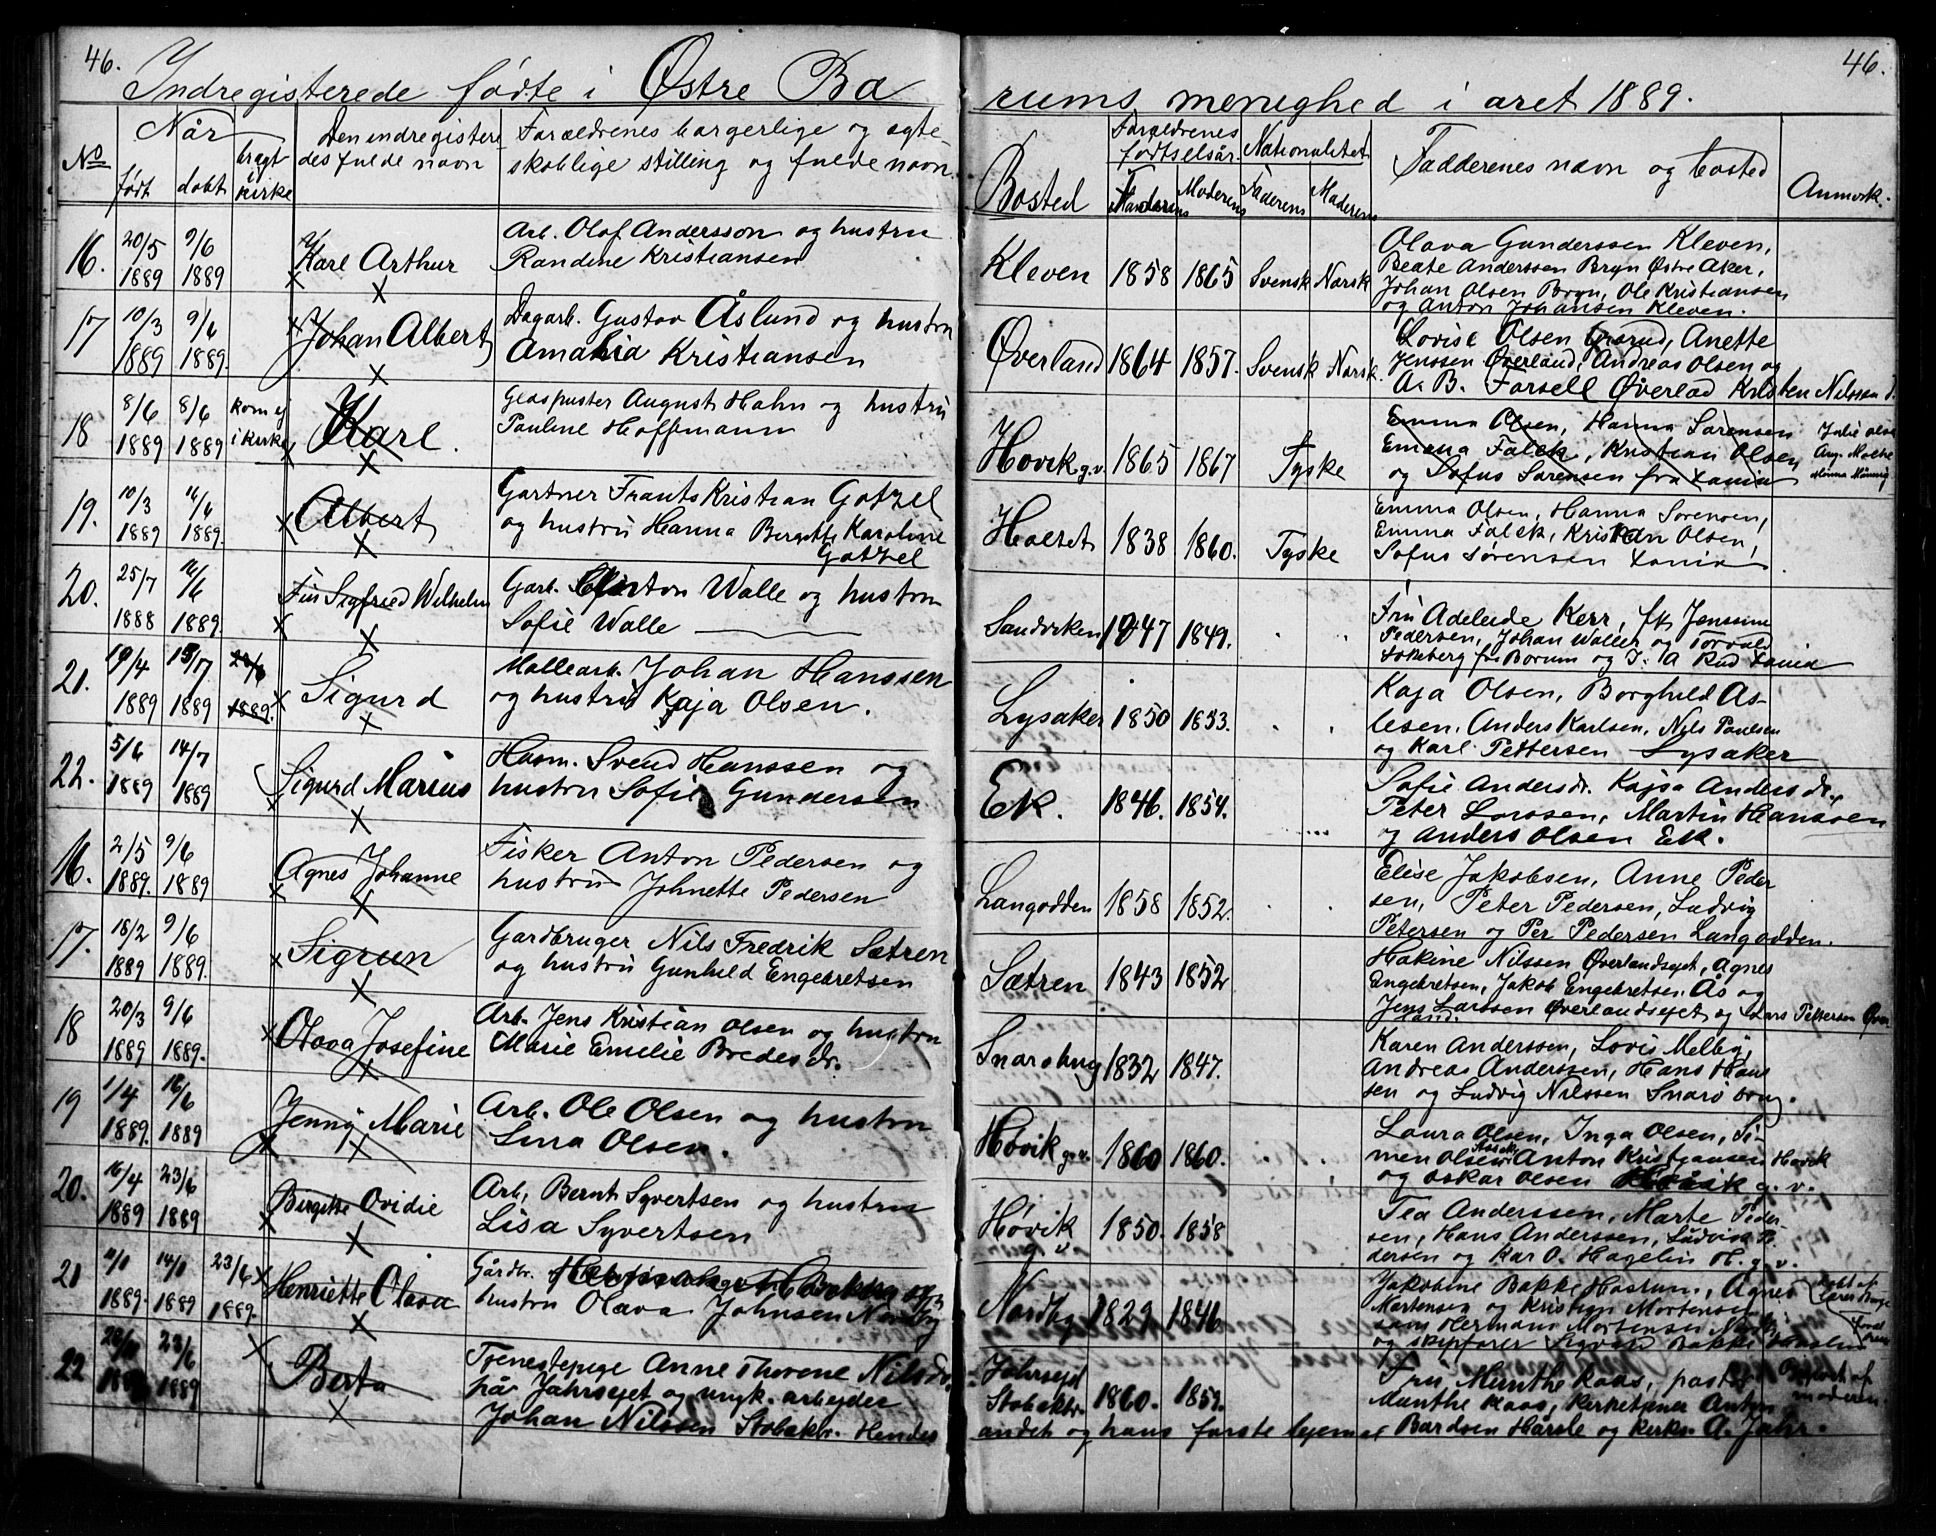 46.
46.
Indregisterede fødte i Østre Bæ
rums menighed i aret 1889.
No
Når
født
døbt
bragt i kirke
Den indregistere
des fulde navn
Foræeldrenes borgerlige og ægte
skablige stilling og fulde navn
Bosted
Foræeldrenes
fødtselsår
Faderens
Moderens
Nationalitet
Faderens
Moderens
Fadderenes navn og bosted
Anmerk.
16.
20/5
1889
9/6
1889
Karl Arthur
Arb. Olof Andersson og hustru
Randine Kristiansen
Kleven
1858
1865
Svensk
Norsk
Olava Gunderssen Kleven,
Beate Anderssen Bryn Østre Aker,
Johan Olsen Bryn, Ole Kristiansen
og Anton Johansen Kleven.
17
10/3
1889
9/6
1889.
Johan Albert
Dagarb. Gustav Åslund og hustru
Amalia Kristiansen
Øverland
1864
1857.
Svensk
Norsk.
Lovise Olsen Grorud, Anette
Jenssen Øverland, Andreas Olsen og
A. B. Forsell Øverlad Kristen Nilssen
18
8/6
1889
8/6
1889
kom ej
i kirke
Karl.
Glaspuster August Hahn og hustru
Pauline Hoffmann
Høvik g.v.
1865
1867
Tyske
Emma Olsen, Hanna Sørensen
Emma Falck, Kristian Olsen
og Sofus Sørensen fra Xania
Julie Olse
Aug. Nolte
Minna Männig
19.
10/3
1889
16/6
1889.
Albert
Gartner Frants Kristian Gotzel
og hustru Hanna Birgitte Karoline
Gotzel
Holtet
1838
1860.
Tyske
Emma Olsen, Hanna Sorensen,
Emma Falck, Kristian Olsen,
Sofus Sørensen Xania
20.
25/7
1888
16/6
1889
Fin Sigfried Wilhelm
Garb. Anton Walle og hustru
Sofie Walle
Sandviken
1847
1849.
Fru Adeleide Kerr, frk Jenssine
Pedersen, Johan Walle og Torvald
Sokeberg fra Borum og J. A Rud Xania
21.
19/4
1889
1889
23/6
1889.
Sigurd
Møllearb. Johan Hanssen
og hustru Kaja Olsen.
Lysaker
1850
1853.
Kaja Olsen, Borghild As-
lesen, Anders Karlsen, Nils Paulsen
og Karl Pettersen Lysaker
22.
5/6
1889
14/7
1889
Sigurd Marius
Husm. Svend Hanssen og
hustru Sofie Gundersen
Ek.
1846.
1854.
Sofie Andersdr. Kajsa Andersdr.
Peter Larssen, Martin Hanssen
og Anders Olsen Ek.
16.
2/5
1889.
9/6
1889
Agnes Johanne
Fisker Anton Pedersen og
hustru Johnette Pedersen
Langodden
1858
1852.
Elise Jakobsen, Anne Peder
sen, Peter Pedersen, Ludvig
Petersen og Per Pedersen Langodden.
17.
18/2
1889
9/6
1889.
Sigrun
Gardbruger Nils Fredrik Sætren
og hustru Gunhild Engebretsen
Sætren
1843
1852
Hakine Nilssen Øverlandsejet, Agnes
Engebretsen, Jakob Engebretsen Ås og
Jens Larssen Øverlandsejet og Lars Pettersen Øver
land.
18
20/3
1889
9/6
1889.
Olava Josefine
Arb. Jens Kristian Olsen og hustru
Marie Emelie Bredesdr.
Snarøbug
1832
1847.
Karen Anderssen, Lovis Melby,
Andreas Anderssen, Hans Hans
sen og Ludvig Nilssen Snarø bug.
19
1/4
1889.
16/6
1889
Jenny Marie
Arb. Ole Olsen og hustru
Lina Olsen.
Høvik g.v.
1860
1860.
Laura Olsen, Inga Olsen, Si-
men Olsen Anton Kristiansen Høvik
og Oskar Olsen g. v.
20.
16/4
1889
23/6
1889
Birgitte Ovidie
Arb. Bernt Syvertsen og hustru
Lisa Syvertsen
Høvik
g. v.
1850.
1858
Tea Anderssen, Marte Peder-
sen, Hans Anderssen, Ludvik P
dersen og Kar O. Hagelin H. g. v.
21
1889.
1889
23/6
1889.
Henriette Olava
Gårdbr. og
hustru Olava Johnsen Nordby
Nordby
1829
1846
Jakobine Bakke Haslum, Agnes
Mortensen og Kristian Mortensen
sam Hermans Mortensen
og skipfører Sigvard Bakke Haslum
22
23/6
1889
Berta
Tjenestepige Anne Thorene Nilsdr.
på Jahrsejet og ungk. arbejder
Johan Nilssen Stobakbr. Hendes
Jahrsejet
Stobakbr.
1860.
1859.
Fru Munthe Kaas, pastor
Munthe Kaas, kirketjener Anton
andet og hans første lejemål Bardsen Hårsle og kirks. A. Jahr.
Opgivet af
moderen.